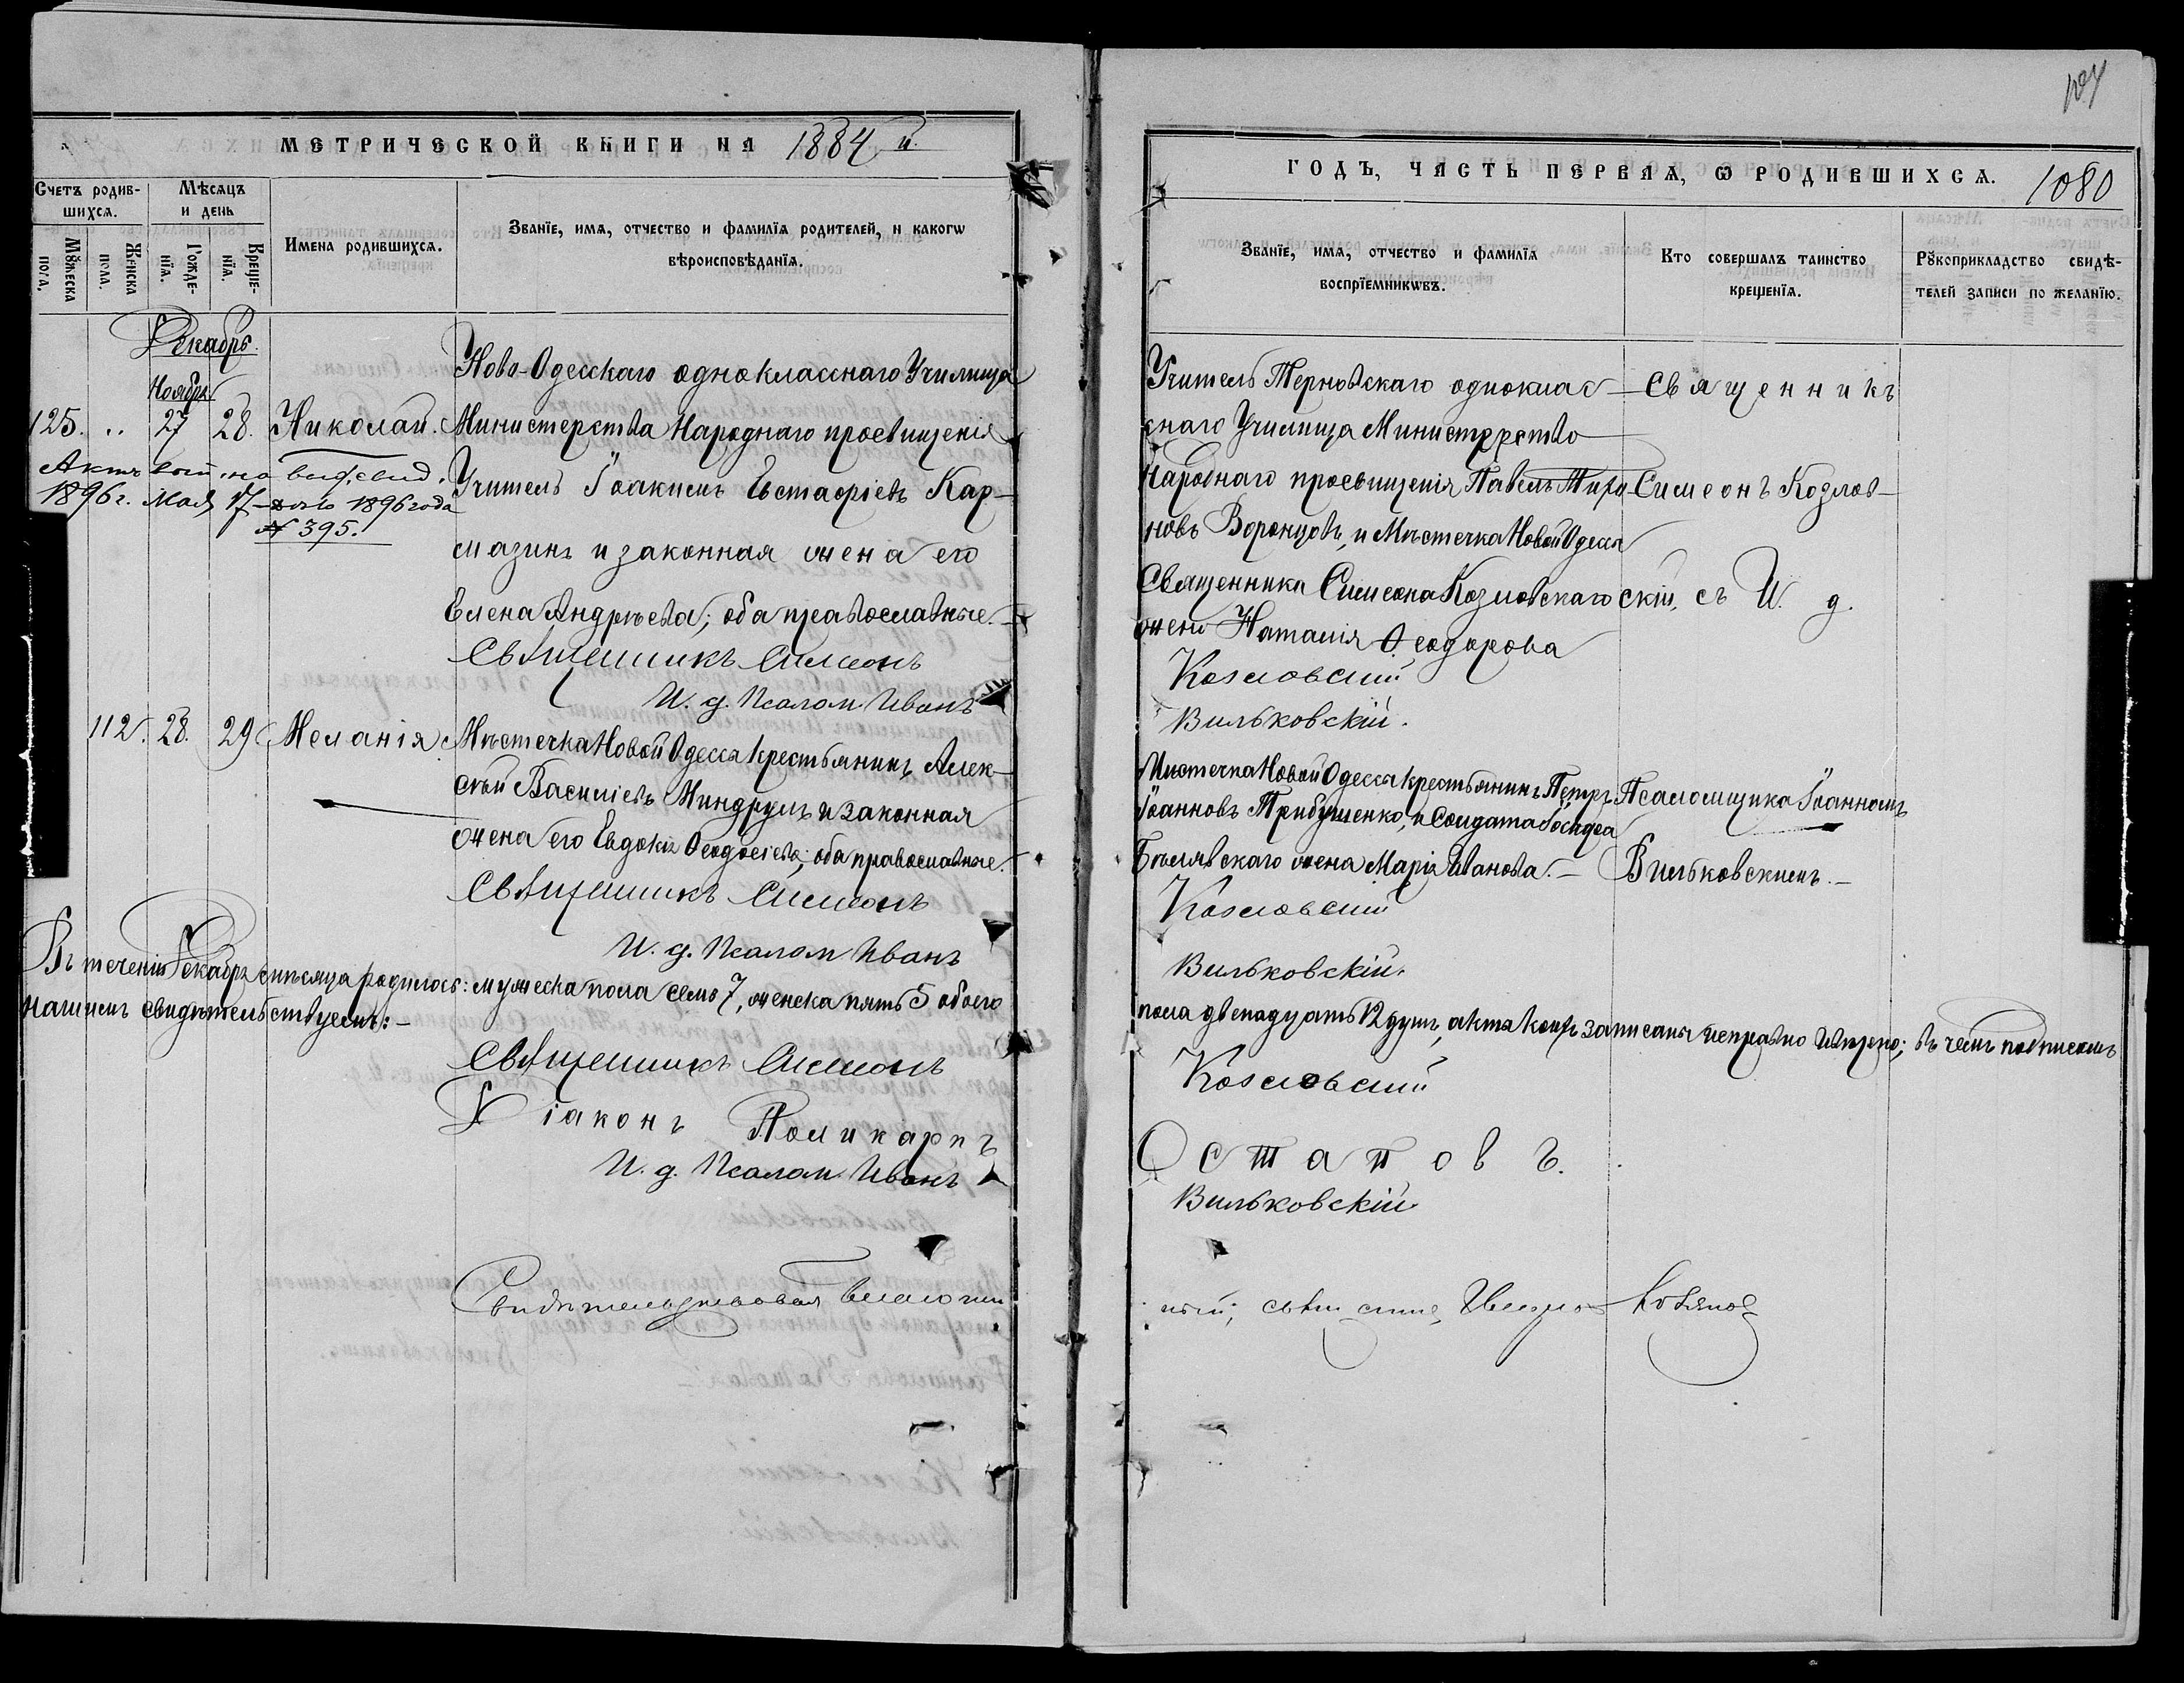 МЕТРИЧЕСКОЙ КНИГИ НА 1884 й.
Счетъ родив-
шихся.
Мѣсяцъ
и день
Мꙋжеска
пола.
Женска
пола.
Рожде-
нїя.
Креще-
нїя.
Имена родившихся.
Званїе, имя, отчество и фамилїя родителей, и какогѡ
вѣроисповѣданїя.
Декабрь.
Ноября
125. „ 27 28. Николай.
Ново-Одесскаго одноклассного Училища
Министерства Народнаго просвищенія
Учитель Іоакимъ Евстафіевъ Кар-
мазинъ и законная жена его
Елена Андрѣева; оба православные.
Актъ сей на
1896 г. Мая 17 1896 года
№ 395.
Священникъ Симеонъ
И. д. Псалом. Иванъ
112. 28. 29 Меланія.
Мѣстечка Новой Одессы крестьянинъ Алек-
сѣй Василіевъ Миндрулъ и законная
жена его Евдокія Ѳеодосіева; оба православные.
Священникъ Симеонъ
И. д. Псалом. Иванъ
Въ теченіи Декабря мѣсяца родилось: мужеска пола семь 7, женска пять 5 обоего
нашимъ свидѣтельствуемъ: –
Священникъ Симеонъ
Діаконъ Поликарпъ
И. д. Псалом. Иванъ
Свидѣтельствовалъ Благочин
107
ГОДЪ, ЧАСТЬ ПЕРВАЯ, Ѡ РОДИВШИХСЯ. 1080
Званїе, имя, отчество и фамилїя
воспрїемникѡвъ.
Кто совершалъ таинство
крещенїя.
Рꙋкоприкладство свидѣ-
телей записи по желанїю.
Учитель Терновскаго одноклас-
снаго Училища Министерства
Народнаго просвищенія Павелъ Миро-
новъ Воронцовъ, и Мѣстечка Новой Одессы
Священника Симеона Козловскаго
жена Наталія Ѳеодорова
Священникъ
Симеонъ Козлов-
скій, съ И. д.
Козловскій
Вильковскій.
Мѣстечка Новой Одессы крестьянинъ Петръ
Іоанновъ Трибушенко, и Солдата Іосифа
Бѣлявскаго жена Марія Иванова. –
Псаломщика Іоанномъ
Вильковскимъ. –
Козловскій
Вильковскій.
пола двенадцать 12 душъ, акты коихъ записаны исправно и вѣрно; въ чемъ подписомъ
Козловскій
Остаповъ.
Вильковскій
ный,